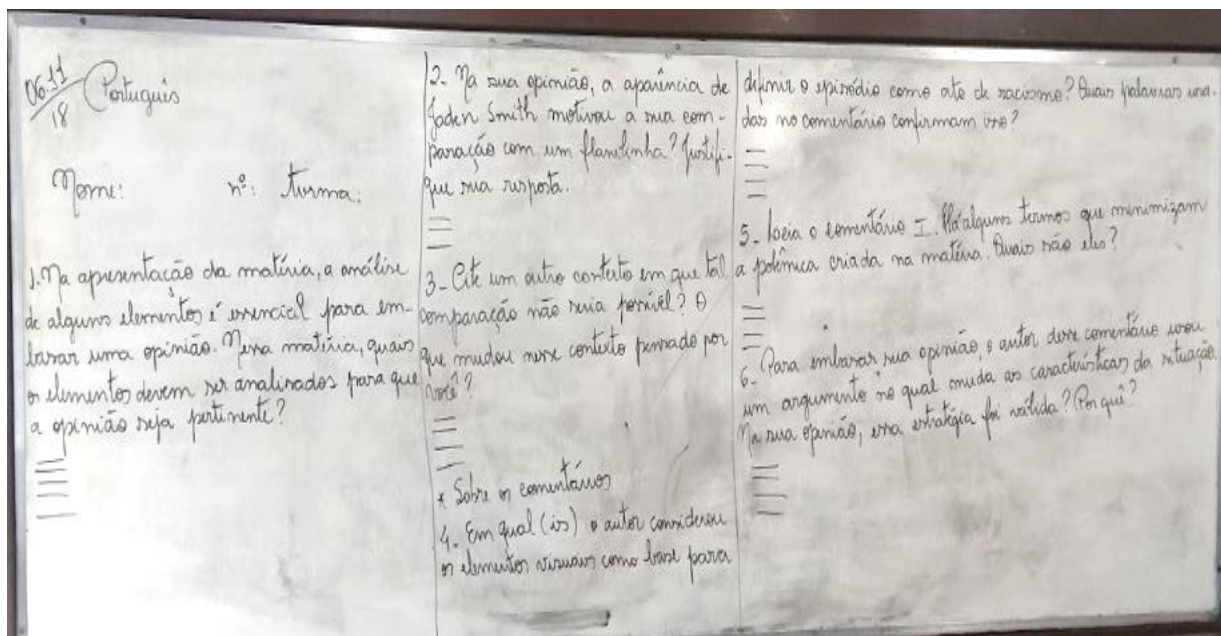 06.11
18
Português
Nome: nº: turma:
1. Na apresentação da matéria, a análise
de alguns elementos é essencial para em-
basar uma opinião. Nessa matéria, quais
os elementos devem ser analisados para que
a opinião seja pertinente?
2. Na sua opinião, a aparência de
Jaden Smith motivou a sua com-
paração com um flanelinha? Justifi-
que sua resposta.
3- Cite um outro contexto em que tal
comparação não seria possível? O
que mudou nesse contexto pensado por
você?
* Sobre os comentários
4. Em qual (is) o autor considerou
os elementos visuais como base para
definir o episódio como ato de racismo? Quais palavras usa-
das no comentário confirmam isso?
5- Leia o comentário I. Há alguns termos que minimizam
a polêmica criada na matéria. Quais são eles?
6- Para embasar sua opinião, o autor desse comentário usou
um argumento no qual muda as características da situação.
Na sua opinião, essa estratégia foi válida? Por quê?